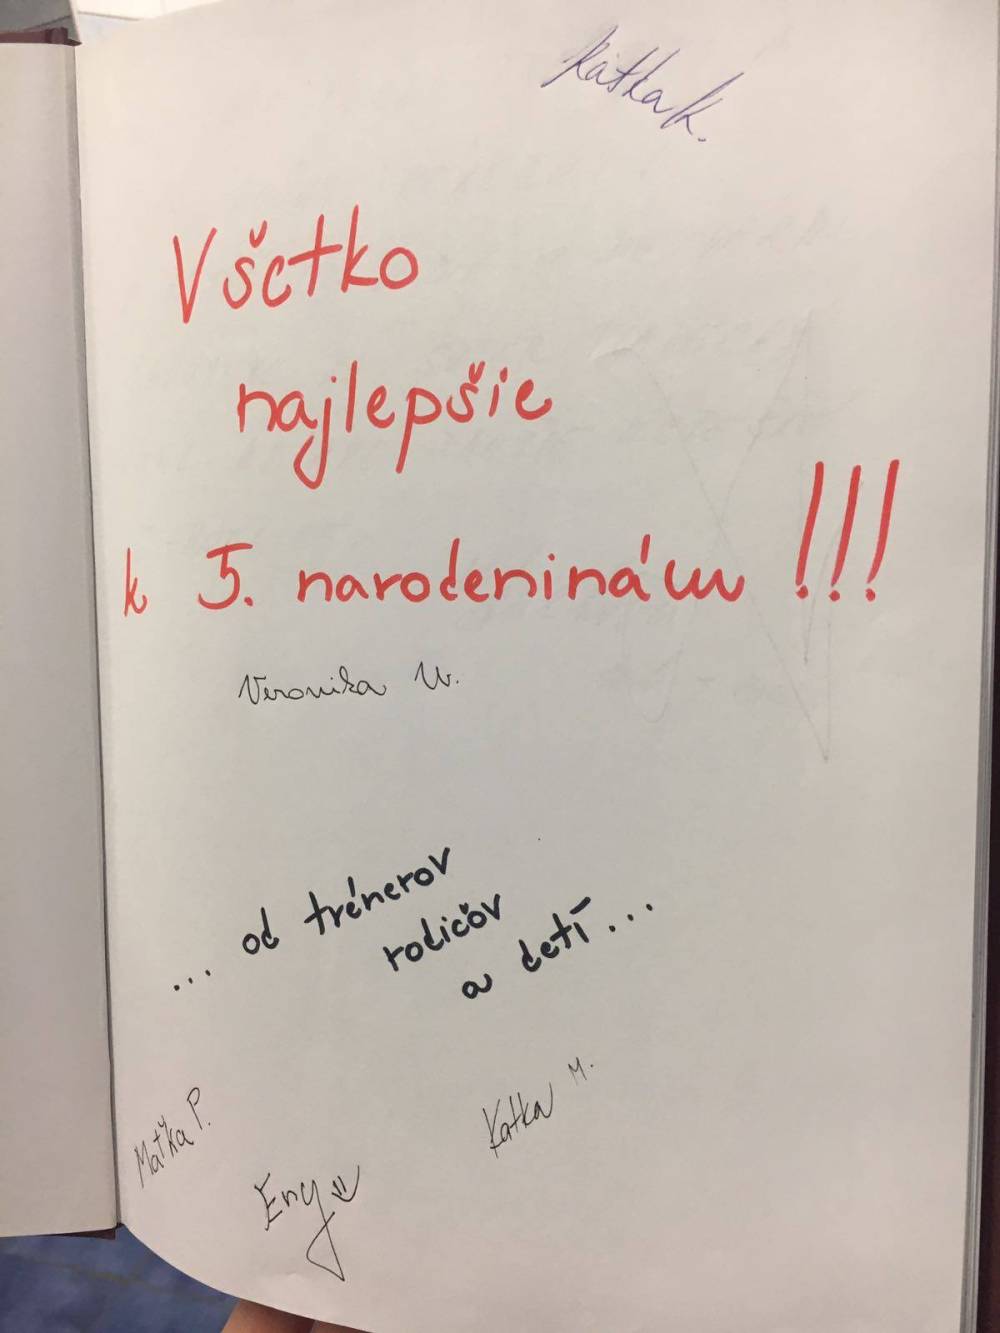 Katka K.
Všetko
najlepšie
k 5. narodeninám !!!
Veronika W.
... od trénerov
rodičov
a detí ...
Maťka P.
Katka M.
Eny